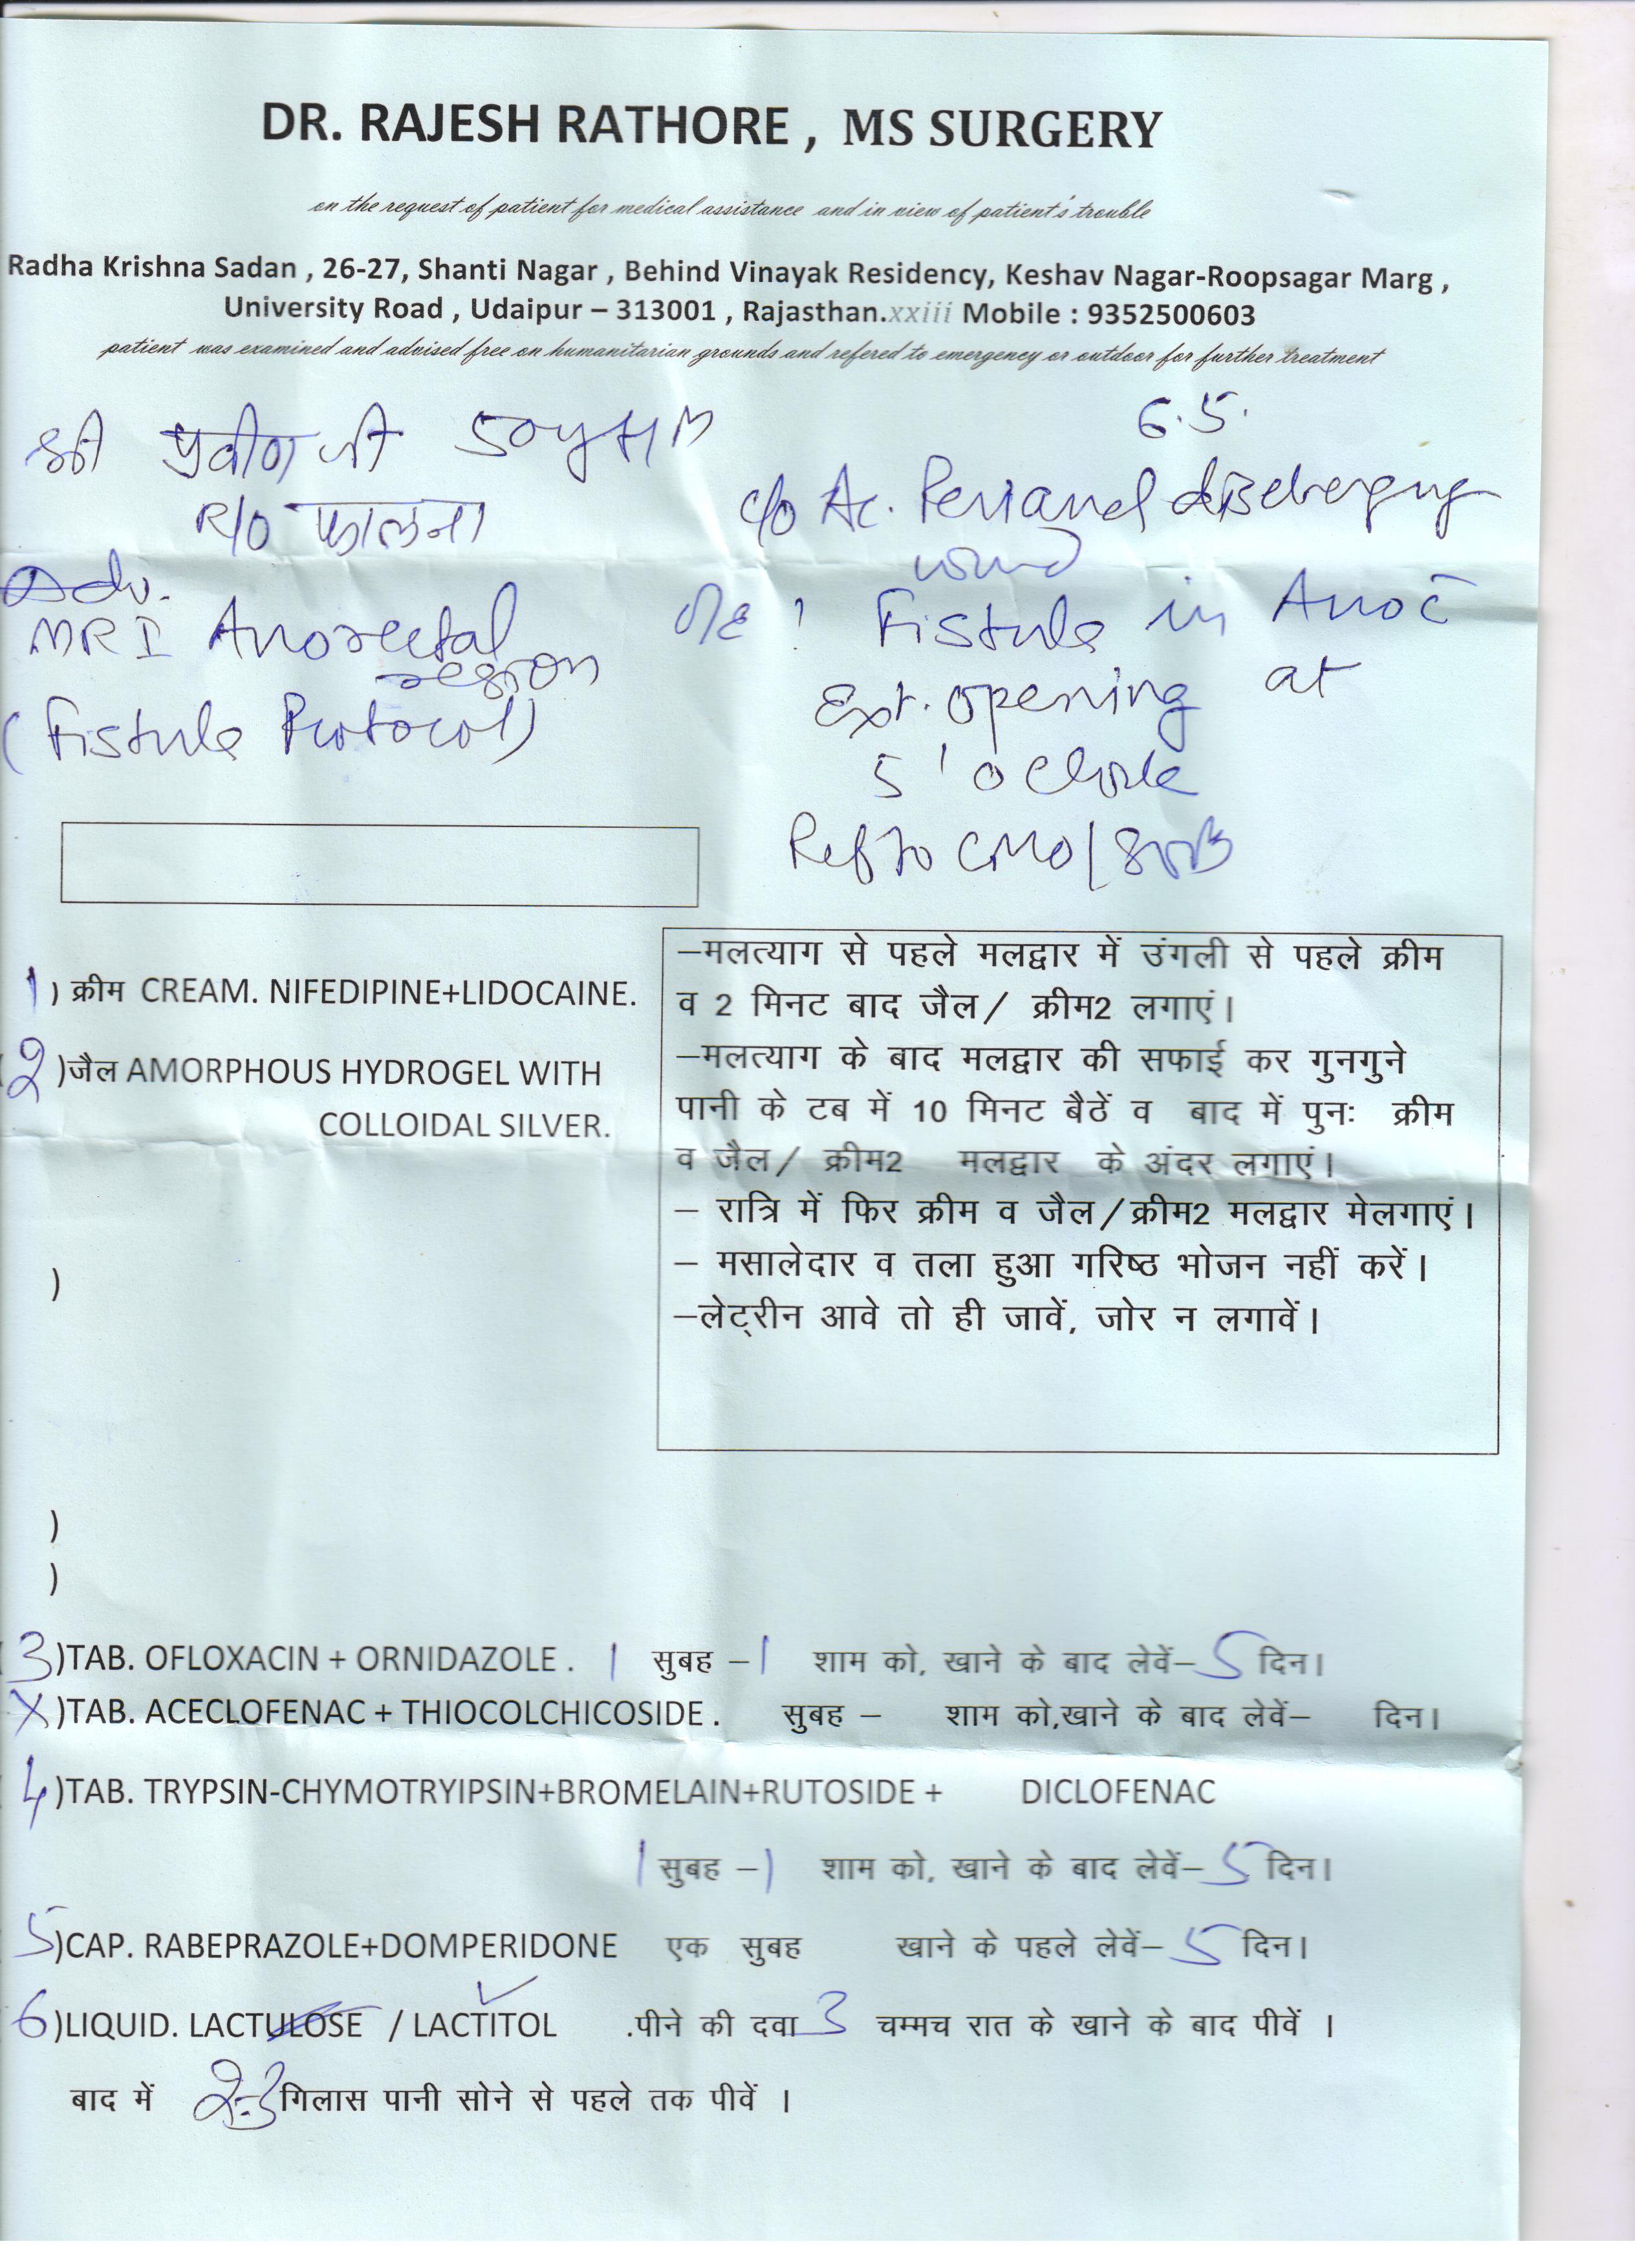 DR. RAJESH RATHORE , MS SURGERY
on the request of patient for medical assistance and in view of patient's trouble
Radha Krishna Sadan , 26-27, Shanti Nagar , Behind Vinayak Residency, Keshav Nagar-Roopsagar Marg ,
University Road , Udaipur – 313001 , Rajasthan.xxiii Mobile : 9352500603
patient was examined and advised free on humanitarian grounds and refered to emergency or outdoor for further treatment
6.5.
श्री प्रवीण जी 50y M
R/O फालना
c/o Ac. Perianal discharging
wound
Adv.
MRI Anorectal
region
(Fistula Protocol)
O/E ! Fistula in Ano c̄
Ext. opening at
5 'oclock
Ref to CMO/
1) क्रीम CREAM. NIFEDIPINE+LIDOCAINE.
2)जैल AMORPHOUS HYDROGEL WITH
COLLOIDAL SILVER.
–मलत्याग से पहले मलद्वार में उंगली से पहले क्रीम
व 2 मिनट बाद जैल/ क्रीम2 लगाएं।
–मलत्याग के बाद मलद्वार की सफाई कर गुनगुने
पानी के टब में 10 मिनट बैठें व बाद में पुनः क्रीम
व जैल/ क्रीम2 मलद्वार के अंदर लगाएं।
– रात्रि में फिर क्रीम व जैल/क्रीम2 मलद्वार मेलगाएं।
– मसालेदार व तला हुआ गरिष्ठ भोजन नहीं करें।
–लेट्रीन आवे तो ही जावें, जोर न लगावें।
)
)
)
3)TAB. OFLOXACIN + ORNIDAZOLE . 1 सुबह –1 शाम को, खाने के बाद लेवें– 5 दिन।
X)TAB. ACECLOFENAC + THIOCOLCHICOSIDE . सुबह – शाम को,खाने के बाद लेवें– दिन।
4)TAB. TRYPSIN-CHYMOTRYIPSIN+BROMELAIN+RUTOSIDE + DICLOFENAC
1 सुबह –1 शाम को, खाने के बाद लेवें– 5 दिन।
5)CAP. RABEPRAZOLE+DOMPERIDONE एक सुबह खाने के पहले लेवें– 5 दिन।
6)LIQUID. LACTULOSE / LACTITOL .पीने की दवा 3 चम्मच रात के खाने के बाद पीवें ।
बाद में 2-3 गिलास पानी सोने से पहले तक पीवें ।